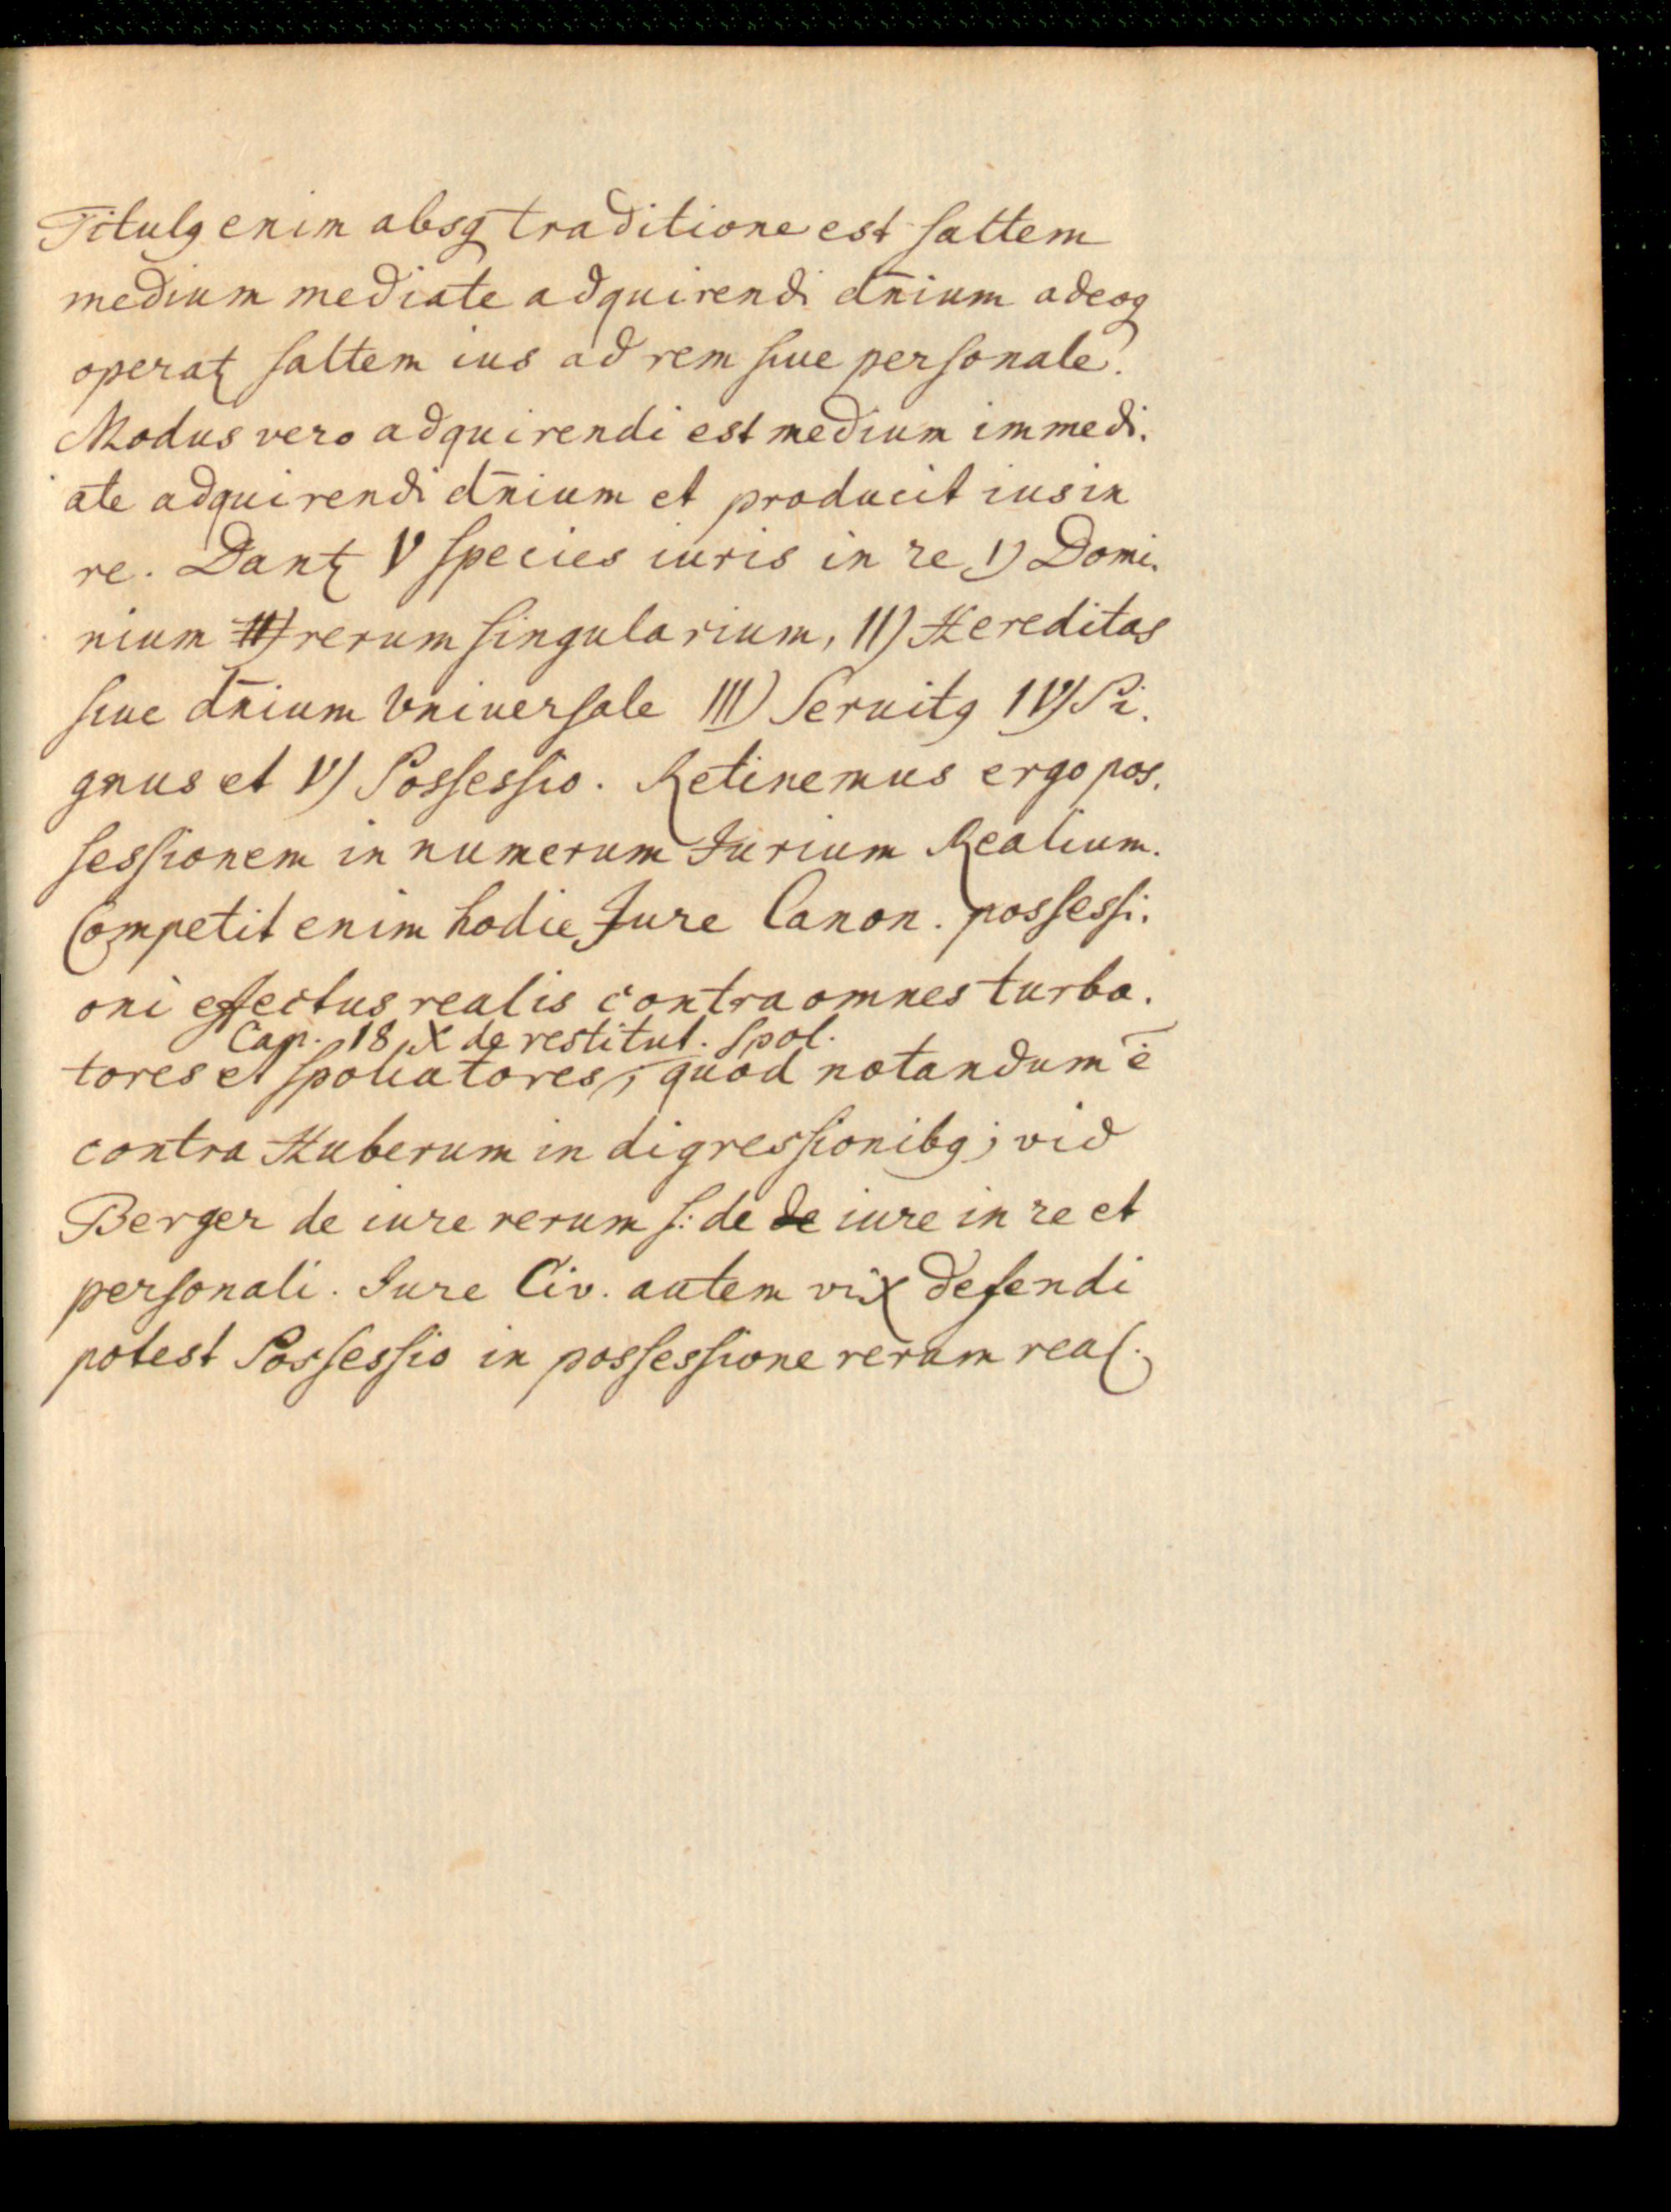 Titulꝯ enim absq traditione est saltem
medium mediate adquirendi dn̄ium adeoq
operatꝭ saltem ius ad rem siue personale.
Modus vero adquirendi est medium immedi.
ate adquirendi dn̄ium et producit ius in
re. Dantꝭ V species iuris in re I) Domi.
nium III) rerum singularium, II) Hereditas
siue dn̄ium Vniuersale III) Seruitꝯ IV) Pi.
gnus et V) Possessio. Retinemus ergo pos.
sessionem in numerum Jurium Realium.
Competit enim hodie Jure Canon. possessi.
oni effectus realis contra omnes turba.
Cap. 18 X de restitut. Spol.
tores et spoliatores, quod notandum ē
contra Huberum in digressionibꝯ; vid
Berger de iure rerum s: de de iure in re et
personali. Jure Civ. autem vix defendi
potest Possessio in possessione rerum real.